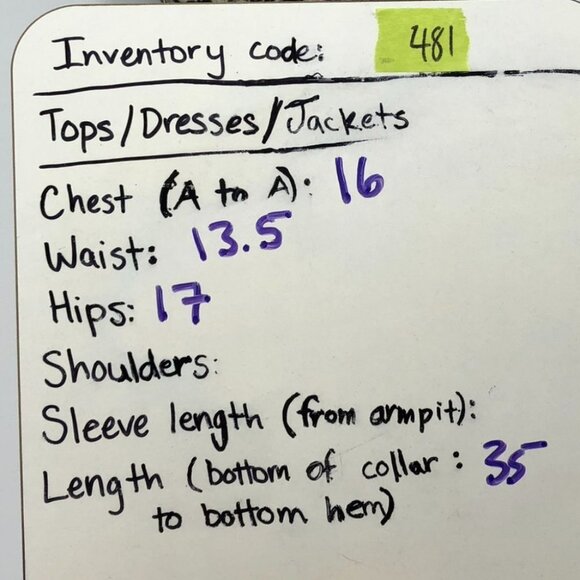 Inventory code: 481
Tops/Dresses/Jackets
Chest (A to A): 16
Waist: 13.5
Hips: 17
Shoulders:
Sleeve length (from armpit):
Length (bottom of collar : 35
to bottom hem)